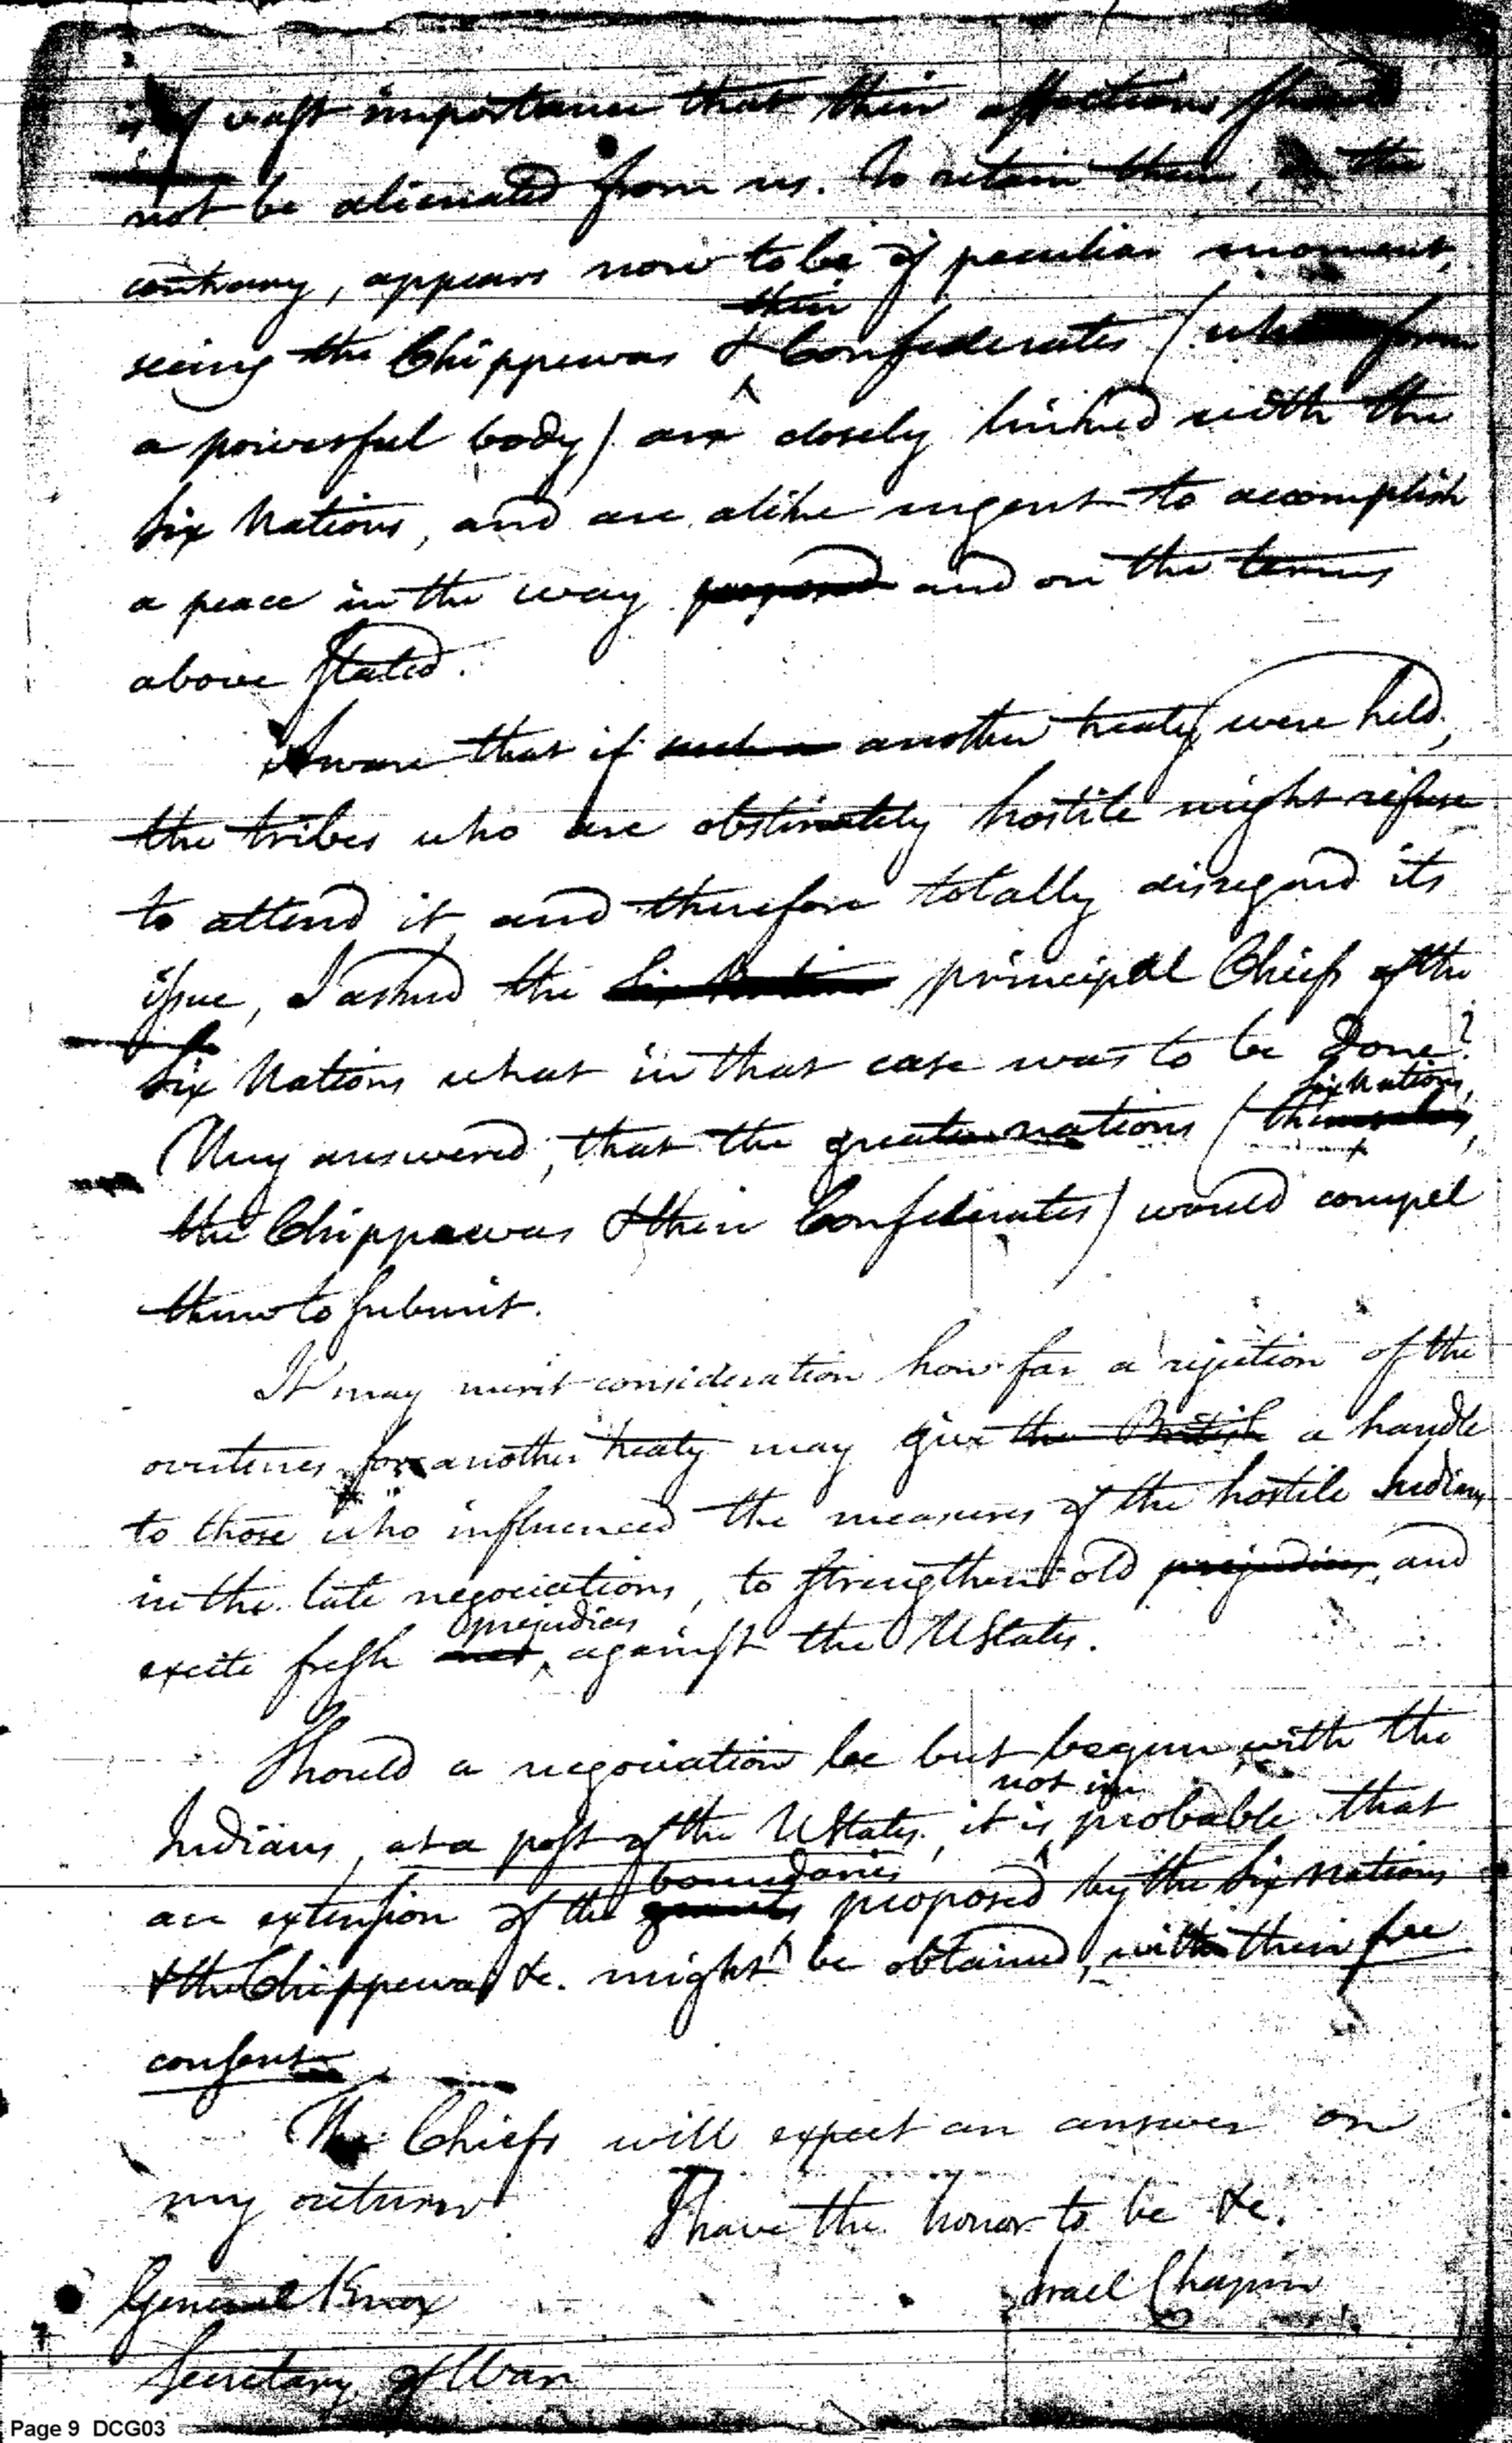 is of vast importance that their affections should
not be alienated from us. To retain them, on the
contrary, appears now to be of peculiar moment,
their
seeing the Chippewas & Confederates (who form
a powerful body) are closely linked with the
Six Nations, and are alike urgent to accomplish
a peace in the way proposed and on the terms
above stated.
Aware that if such a another treaty were held,
the tribes who are obstinately hostile might refuse
to attend it, and therefore totally disregard its
issue, I asked the Six Nations principal Chiefs of the
Six Nations what in that case was to be done?
Six Nations,
They answered, that the greater nations (themselves,
the Chippewas & their Confederates) would compel
them to submit.
It may merit consideration how far a rejection of the
overtures for another treaty may give the British a handle
to those who influenced the measures of the hostile Indians
in the late negociations, to strengthen old prejudices, and
prejudices
excite fresh against the UStates.
Should a negociation be but begun with the
not im
Indians, at a post of the UStates, it is probable that
boundaries
an extension of the grants proposed by the Six Nations
& the Chippewas &c. might be obtained, with their free
consent.
The Chiefs will expect an answer on
my return.
I have the honor to be &c.
Israel Chapin
General Knox
Secretary of War
Page 9 DCG03